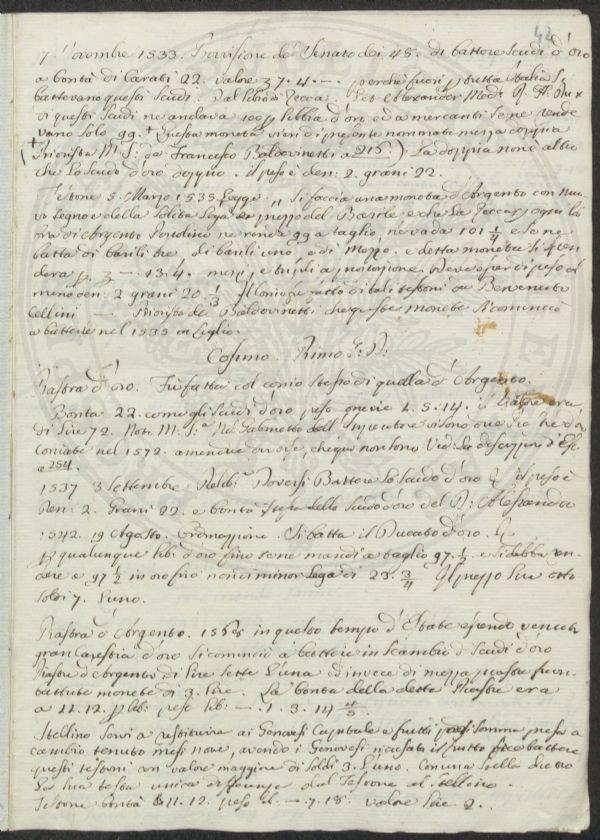 42
7 Novembre 1533. Provisione de Senato dei 48. di battere Scudi d'oro
a bontà di Carati 22. valore 7. 4. —. perche fuori p tutta Italia si
battevano questi Scudi. Dal libro di Zecca. Alexander Med. R. P.
di questi Scudi ne andava 100 p libbra d'oro ed a mercanti se ne rende
vano solo 99. + questa moneta viene di presente nominata mezza doppia
(+ Priorista M. S: da Francesco Baldovinetti a 215.) La doppia non è altro
che lo Scudo d'oro doppio. il peso è den: 2. grani 22.
Testone 5. Marzo 1535. Legge „ Si faccia una moneta d'Argento con nuo
vo segno e della solita Lega per prezzo del Barile e che la Zecca p ogni lib
bra di Argento ne renda 99 a taglio, ne vada 101 1/4 e se ne
batta di barili tre, di barili uno, e di Mezzo. e detta moneta si spen
derà p. — 13. 4. mezzi, e tripli a porzione. Deve esser di peso al
meno den: 2 grani 20 1/3 Il Conio fu fatto di tali testoni da Benvenuto
Cellini — Priorista del Baldovinetti che queste monete si cominciò
a battere nel 1535 in Luglio.
Cosimo. Primo G: D:
Piastra d'oro. Fu fatta col conio stesso di quella d'Argento.
Bontà 22. come gli Scudi d'oro peso oncie 1. 5. 14. il valore era
di Lire 72. Note M. S.a Nel Gabinetto dell' Imperatore vi sono due tre d'oro
Coniate nel 1572. Vid: La descrizione d'Esse
a 254.
1537 3 Settembre Delib: Doversi Battere lo Scudo d'oro il peso è
Den: 2. Grani 22 e bontà stessa dello Scudo d'oro del D: Alessandro
1542. 19 Agosto. Ordinazione. Si batta il Ducato d'oro.
p qualunque lib: d'oro fino se ne mandi a taglio 97. 1/2 e si debba ren
dere a 97 1/2 in oro fino non di minor lega di 23. 3/4 Il prezzo Lire otto
soldi 7. l'uno.
Piastra d'Argento. 1568 in questo tempo d'Estate essendo venuta
gran carestia d'oro si cominciò a battere in scambio di Scudi d'oro
Piastre d'Argento di Lire Sette l'una ed invece di mezza piastra furon
battute monete di 3. Lire. La bontà della detta Piastra era
a 11. 12. p lib: peso lib: — 1. 3. 14 4/5.
Stellino Servì a restituire ai Genovesi Capitale e frutti somma presa a
cambio tenuto mesi nove, avendo i Genovesi ricusato il frutto fece battere
questi testoni con valore maggiore di Soldi 3. l'uno. Con una Stella dietro
la sua testa unica differenza dal Testone al Stellino.
Testone bontà 11. 12. peso d. — 7. 18. valore Lire 2.